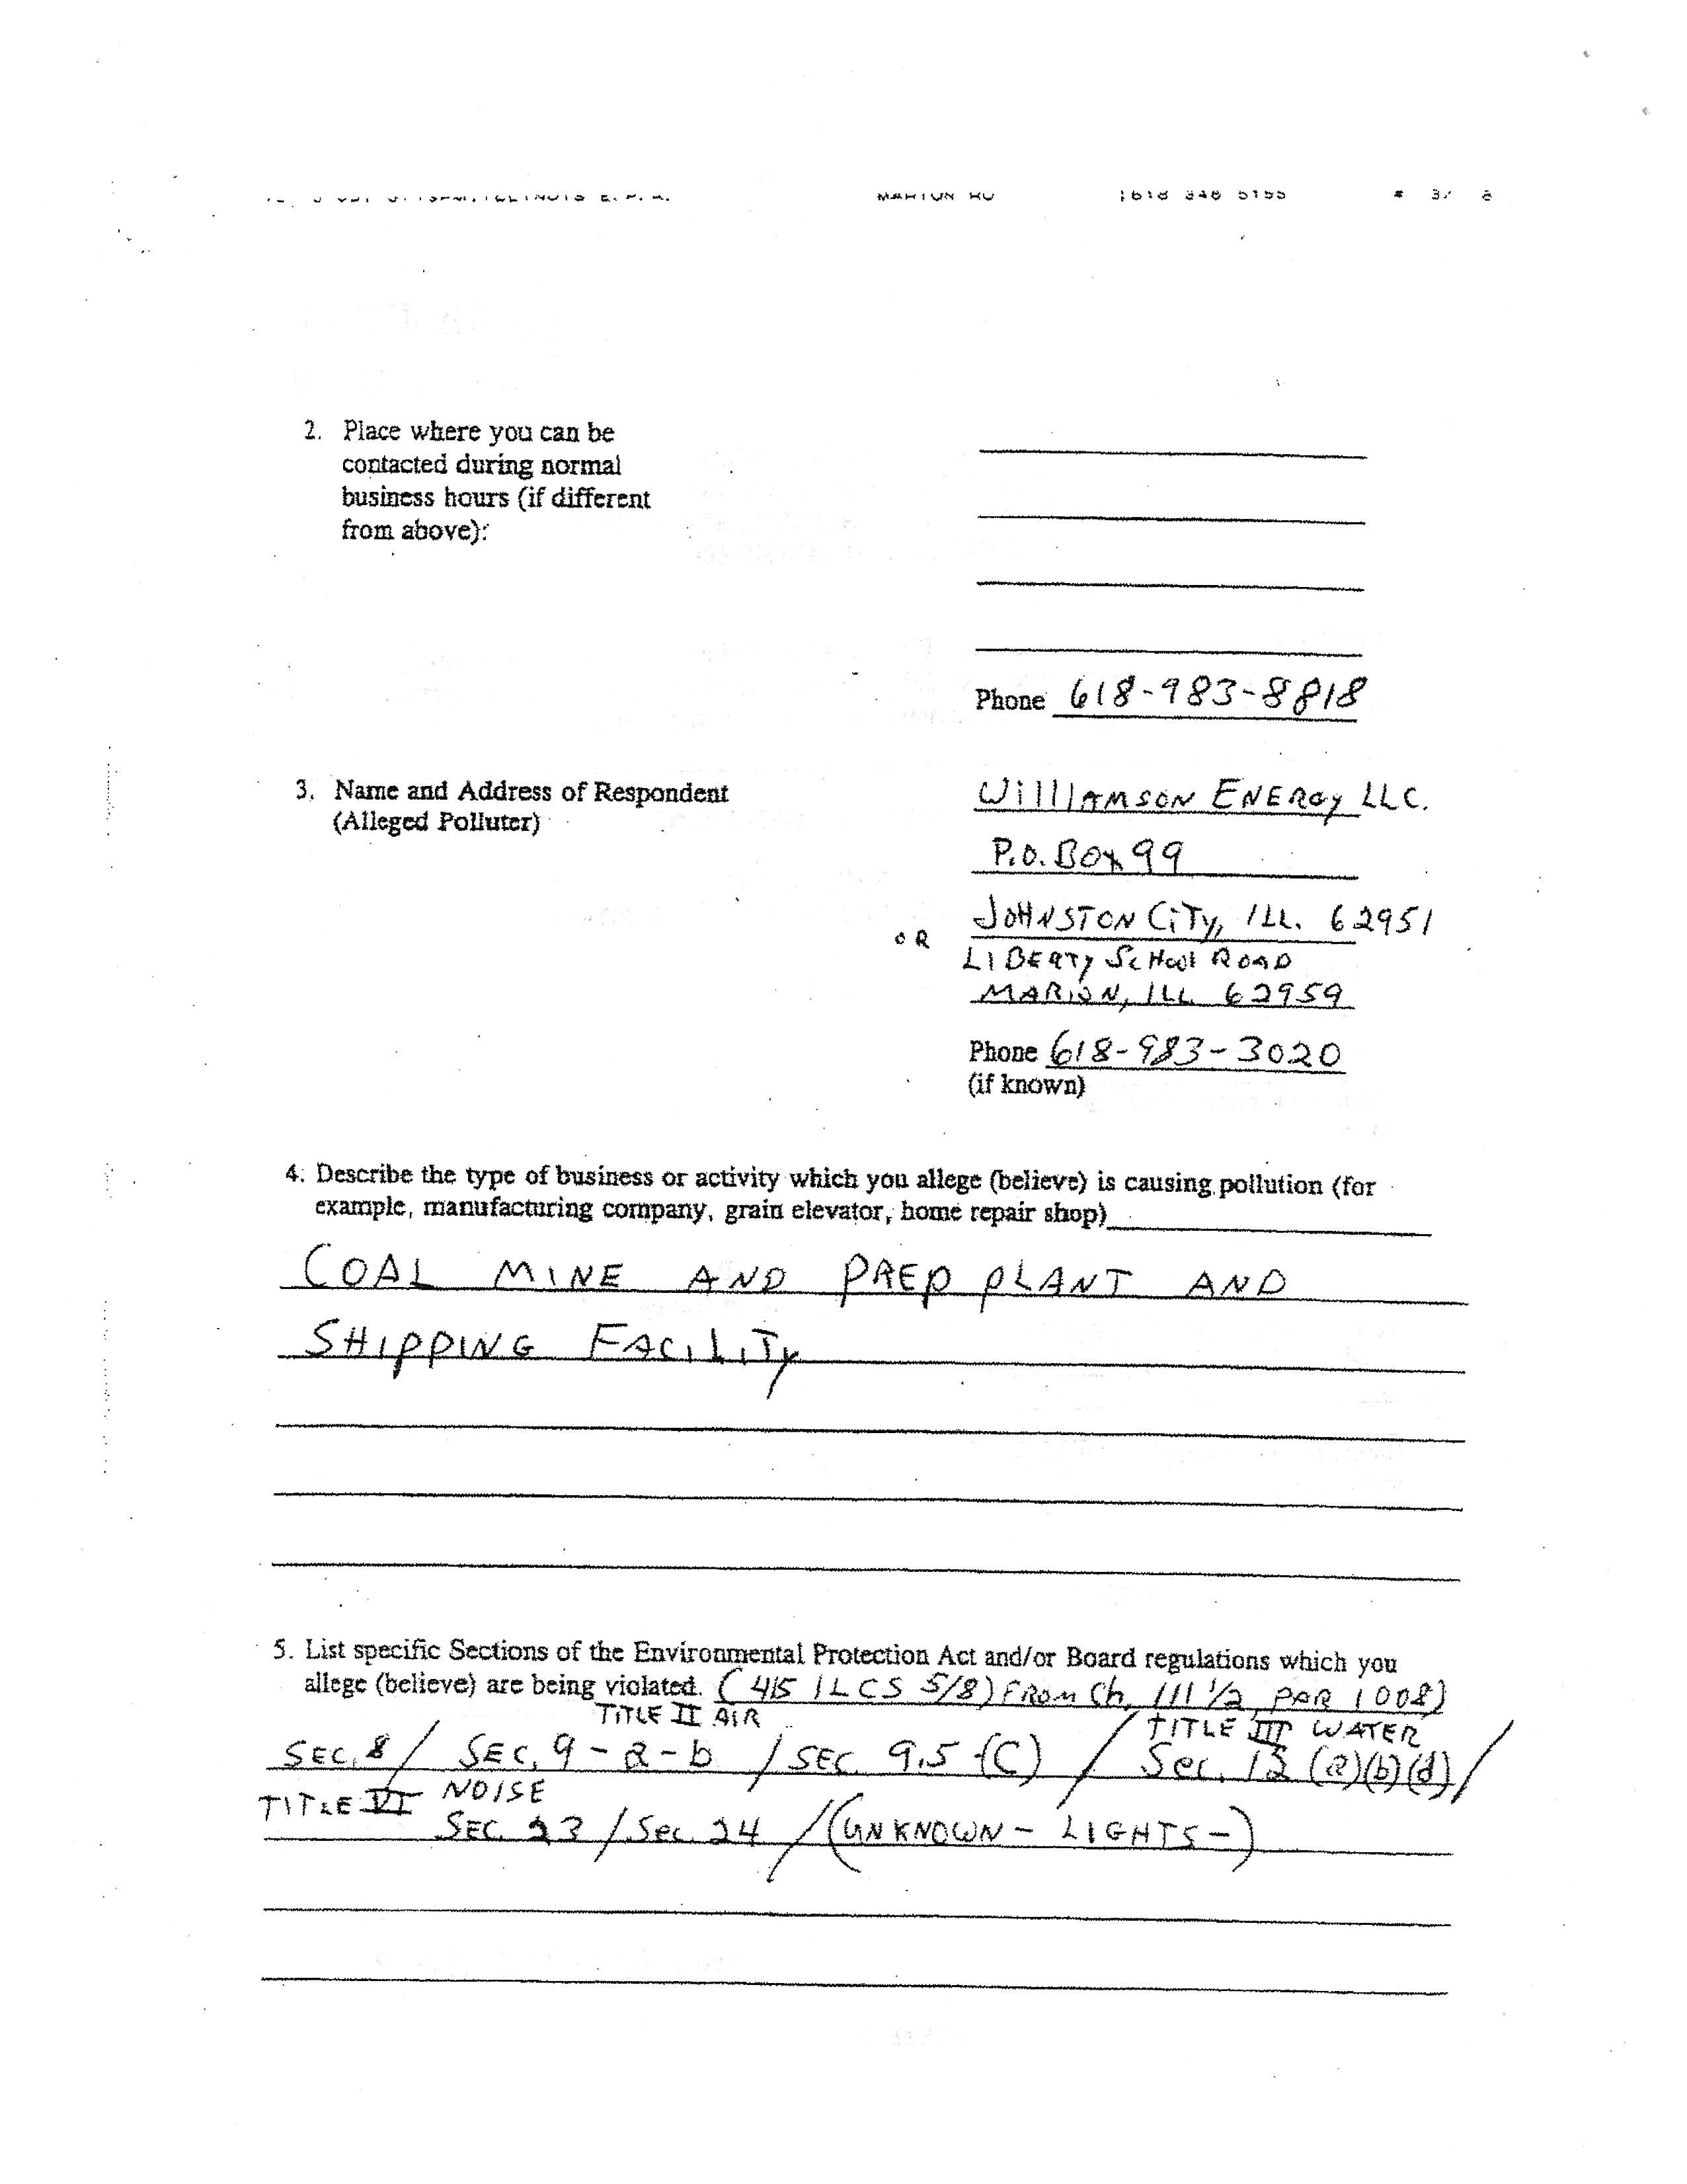 MARION RO
2. Place where you can be
contacted during normal
business hours (if different
from above):
Phone 618-983-8818
3. Name and Address of Respondent
(Alleged Polluter)
WilliAMSON ENERGy LLC.
P.O. BOx 99
JOHNSTON CiTy, ILL. 62951
OR
LIBERTy ScHool ROAD
MARION, ILL 62959
Phone 618-983-3020
(if known)
4. Describe the type of business or activity which you allege (believe) is causing pollution (for
example, manufacturing company, grain elevator, home repair shop)
COAL MINE AND PREP PLANT AND
SHIPPING FACILITy
5. List specific Sections of the Environmental Protection Act and/or Board regulations which you
allege (believe) are being violated. (415 ILCS 5/8) FROM Ch, 111 1/2, PAR 1008)
TITLE II AIR TITLE III WATER
SEC. 8 / SEC. 9-a-b / SEC. 9.5 (C) / Sec. 12 (a)(b)(d) /
TITLE VI NOISE
SEC. 23 / Sec. 24 / (UNKNOWN - LIGHTS -)